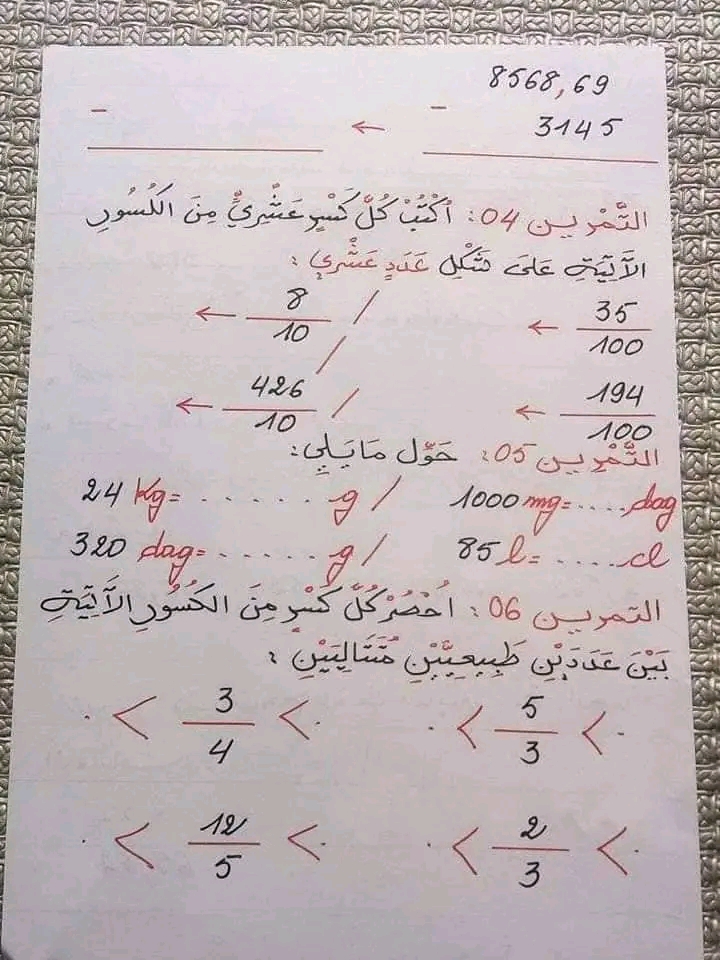 8568,69
- - 3145 ←
التَّمْرين 04: اُكْتُبْ كُلَّ كَسْرٍ عَشْرِيٍّ مِنَ الكُسُورِ
الآتِيَةِ عَلَى شَكْلِ عَدَدٍ عَشْرِي:
35/100 ← / 8/10 ←
/
194/100 ← / 426/10 ←
التَّمْرِين 05: حَوِّل مَا يَلِي:
24 Kg= . . . . . . g / 1000 mg= .... dag
320 dag= . . . . . . g / 85 l= .... cl
التمرين 06: اُحْصُرْ كُلَّ كَسْرٍ مِنَ الكُسُورِ الآتِيَةِ
بَيْنَ عَدَدَيْنِ طَبِيعِيَّيْنِ مُتَتَالِيَيْنِ:
. < 3/4 < . . < 5/3 < .
. < 12/5 < . . < 2/3 < .